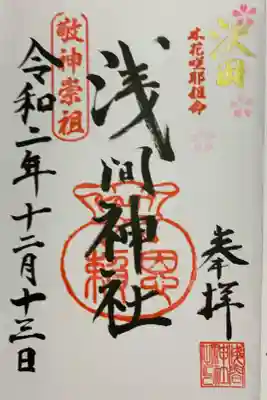 沢田
木花咲耶姫命
奉拝
浅間神社
敬神崇祖
令和二年十二月十三日